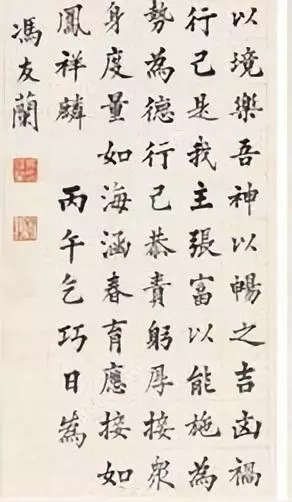 以境樂吾神以暢之吉凶禍
行己是我主張富以能施為
勢為德行己恭責躬厚接衆
身度量如海涵春育應接如
鳳祥麟 丙午乞巧日嵩
馮友蘭